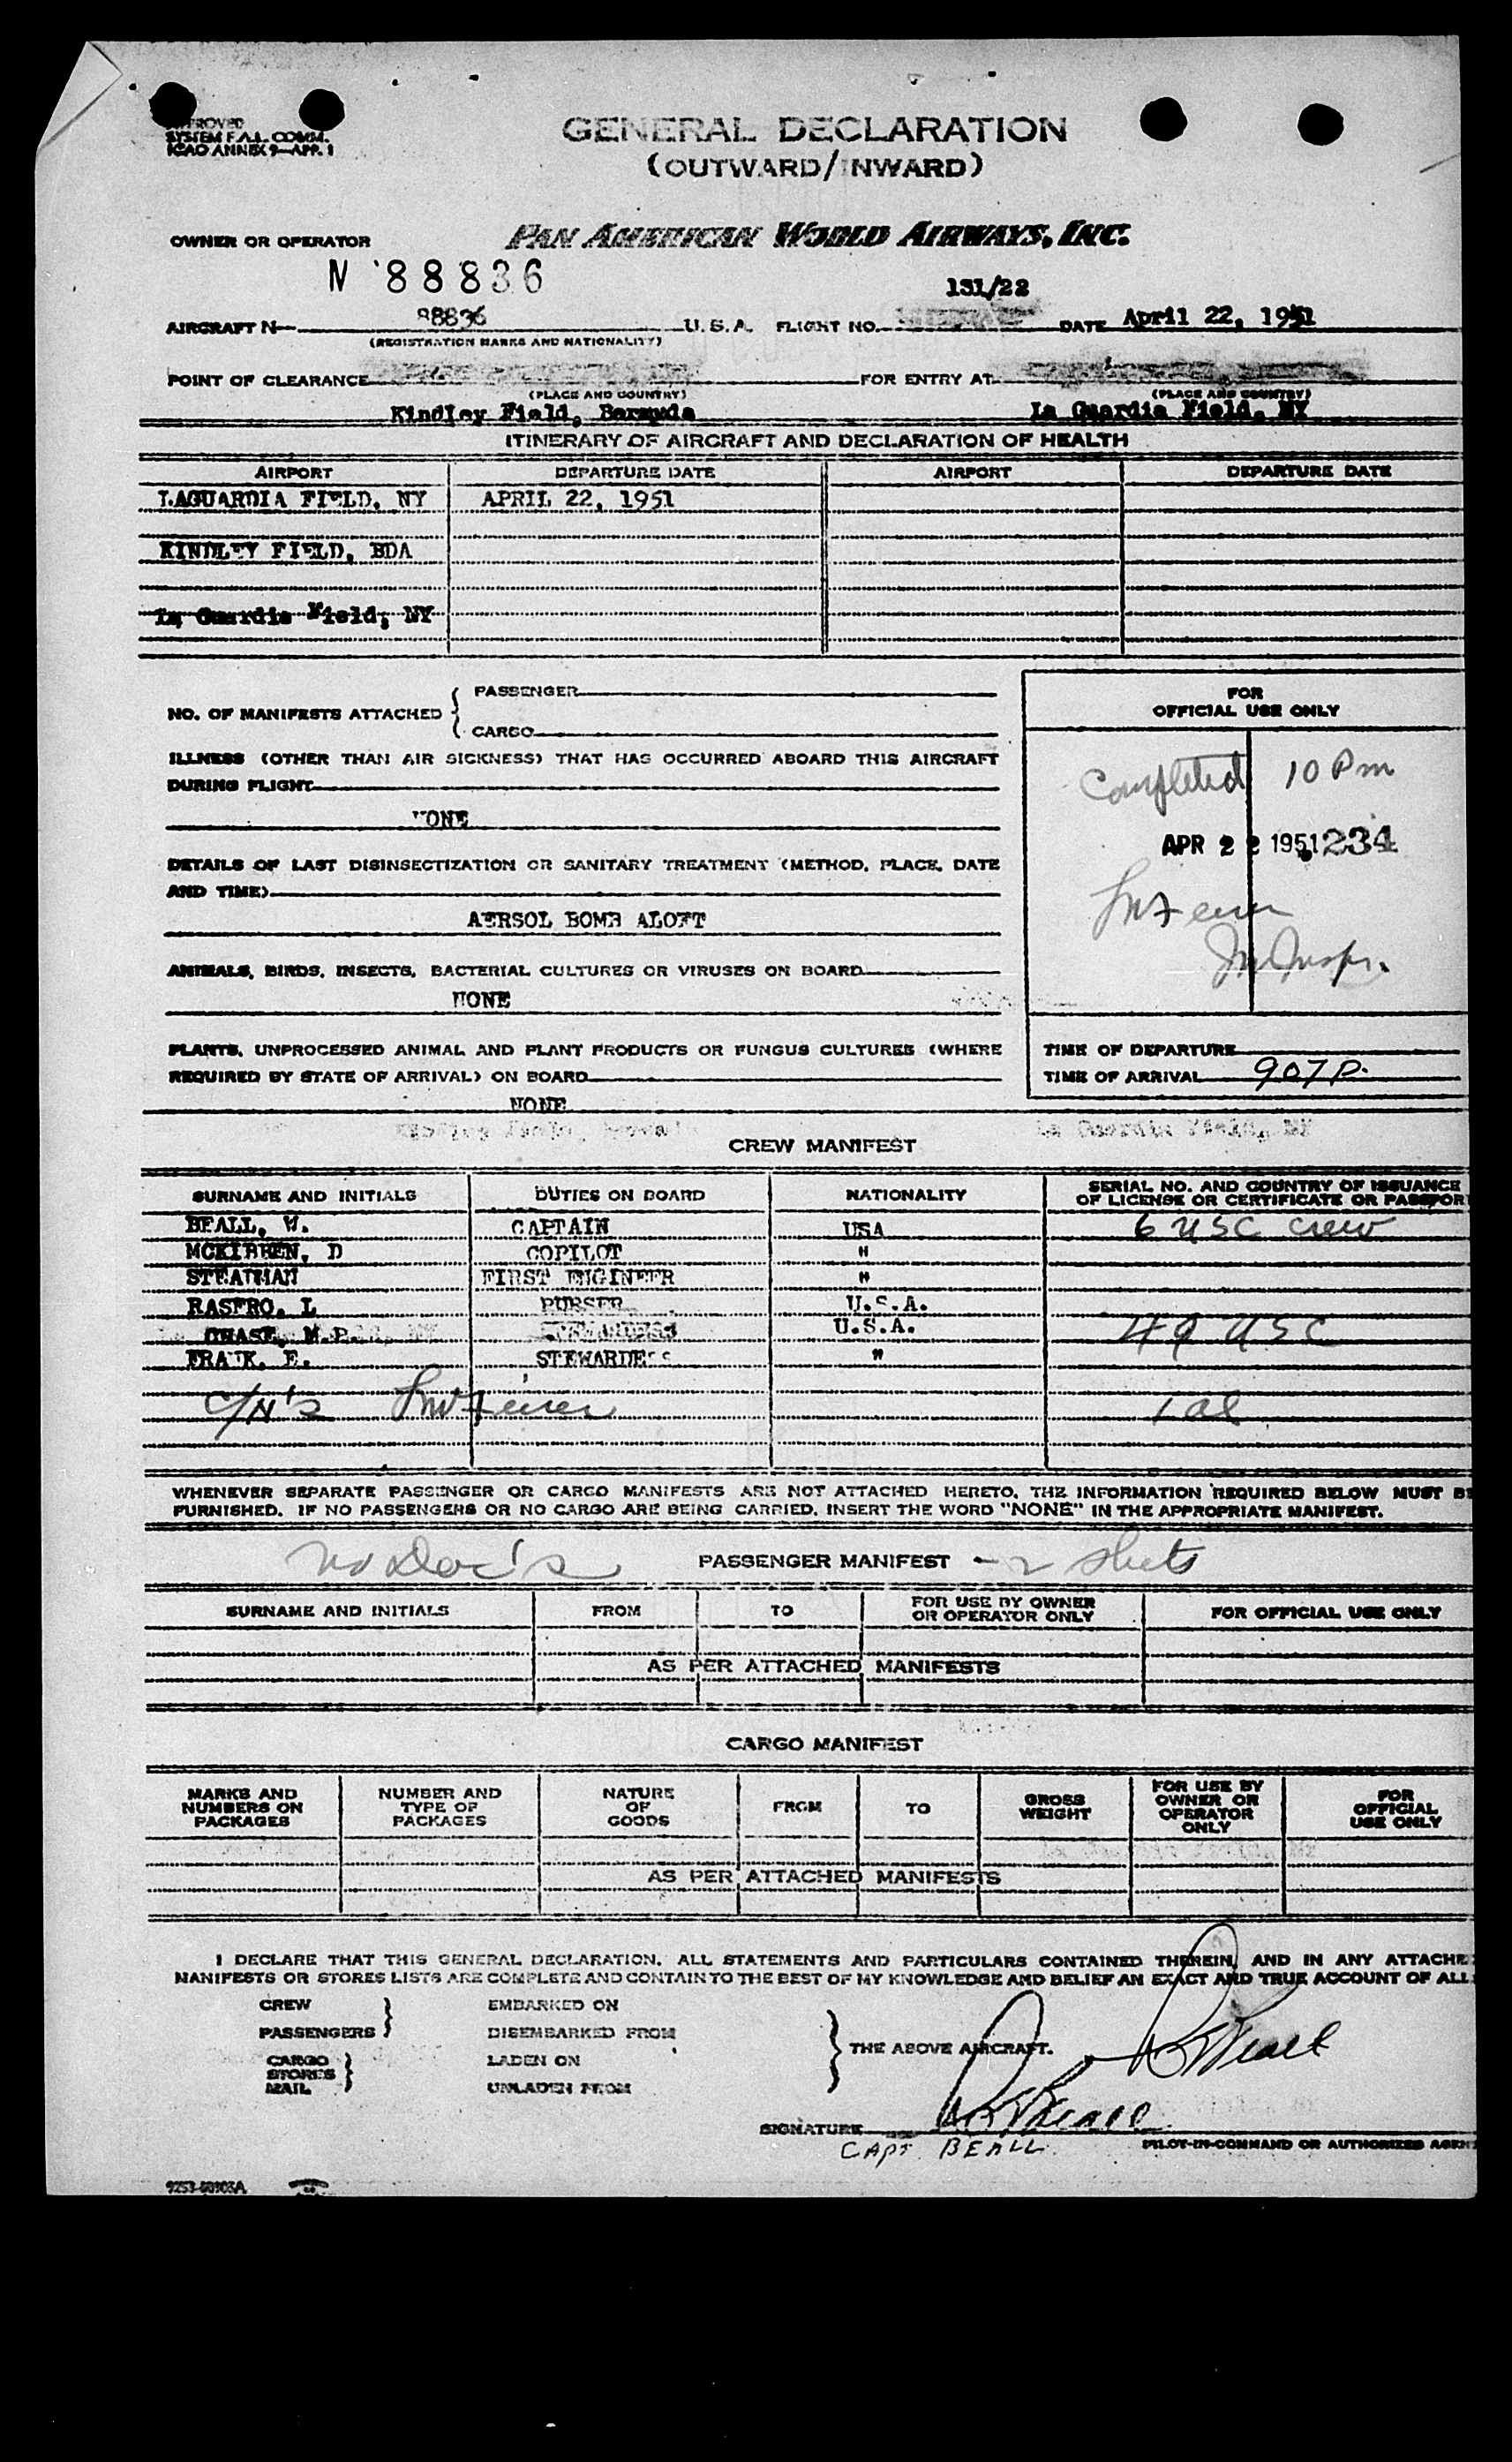 APPROVED
SYSTEM F.A.L. COMM.
ICAO ANNEX 9—APP. 1
GENERAL DECLARATION
(OUTWARD/INWARD)
OWNER OR OPERATOR PAN AMERICAN WORLD AIRWAYS, INC.
N 88836
131/22
AIRCRAFT N— 88836 U.S.A. FLIGHT NO. DATE April 22, 1951
(REGISTRATION MARKS AND NATIONALITY)
POINT OF CLEARANCE FOR ENTRY AT
(PLACE AND COUNTRY) (PLACE AND COUNTRY)
Kindley Field, Bermuda La Guardia Field, NY
ITINERARY OF AIRCRAFT AND DECLARATION OF HEALTH
AIRPORT DEPARTURE DATE AIRPORT DEPARTURE DATE
LAGUARDIA FIELD, NY APRIL 22, 1951
KINDLEY FIELD, BDA
La Guardia Field, NY
NO. OF MANIFESTS ATTACHED { PASSENGER
CARGO
FOR
OFFICIAL USE ONLY
ILLNESS (OTHER THAN AIR SICKNESS) THAT HAS OCCURRED ABOARD THIS AIRCRAFT
DURING FLIGHT
NONE
Completed 10 Pm
APR 22 1951 234
DETAILS OF LAST DISINSECTIZATION OR SANITARY TREATMENT (METHOD, PLACE, DATE
AND TIME)
AERSOL BOMB ALOFT
ANIMALS, BIRDS, INSECTS, BACTERIAL CULTURES OR VIRUSES ON BOARD
NONE
PLANTS, UNPROCESSED ANIMAL AND PLANT PRODUCTS OR FUNGUS CULTURES (WHERE
REQUIRED BY STATE OF ARRIVAL) ON BOARD
NONE
TIME OF DEPARTURE
TIME OF ARRIVAL 907 P.
La Guardia Field, NY
CREW MANIFEST
SURNAME AND INITIALS DUTIES ON BOARD NATIONALITY SERIAL NO. AND COUNTRY OF ISSUANCE
OF LICENSE OR CERTIFICATE OR PASSPOR
BEALL, W. CAPTAIN USA 6 USC crew
MCKIBBEN, D COPILOT "
STEATMAN FIRST ENGINEER "
RASERO, L PURSER U.S.A.
CHASE, M.P. STEWARDESS U.S.A. 49 USC
FRANK, E. STEWARDESS "
C/H's 1 al
WHENEVER SEPARATE PASSENGER OR CARGO MANIFESTS ARE NOT ATTACHED HERETO, THE INFORMATION REQUIRED BELOW MUST BE
FURNISHED. IF NO PASSENGERS OR NO CARGO ARE BEING CARRIED, INSERT THE WORD "NONE" IN THE APPROPRIATE MANIFEST.
No Doc's PASSENGER MANIFEST - 2 sheets
SURNAME AND INITIALS FROM TO FOR USE BY OWNER
OR OPERATOR ONLY FOR OFFICIAL USE ONLY
AS PER ATTACHED MANIFESTS
CARGO MANIFEST
MARKS AND
NUMBERS ON
PACKAGES NUMBER AND
TYPE OF
PACKAGES NATURE
OF
GOODS FROM TO GROSS
WEIGHT FOR USE BY
OWNER OR
OPERATOR
ONLY FOR
OFFICIAL
USE ONLY
AS PER ATTACHED MANIFESTS
I DECLARE THAT THIS GENERAL DECLARATION, ALL STATEMENTS AND PARTICULARS CONTAINED THEREIN, AND IN ANY ATTACHE
MANIFESTS OR STORES LISTS ARE COMPLETE AND CONTAIN TO THE BEST OF MY KNOWLEDGE AND BELIEF AN EXACT AND TRUE ACCOUNT OF ALL
CREW EMBARKED ON
PASSENGERS } DISEMBARKED FROM
THE ABOVE AIRCRAFT.
CARGO LADEN ON
STORES }
MAIL UNLADEN FROM
SIGNATURE
CAPT. BEALL PILOT-IN-COMMAND OR AUTHORIZED AGEN